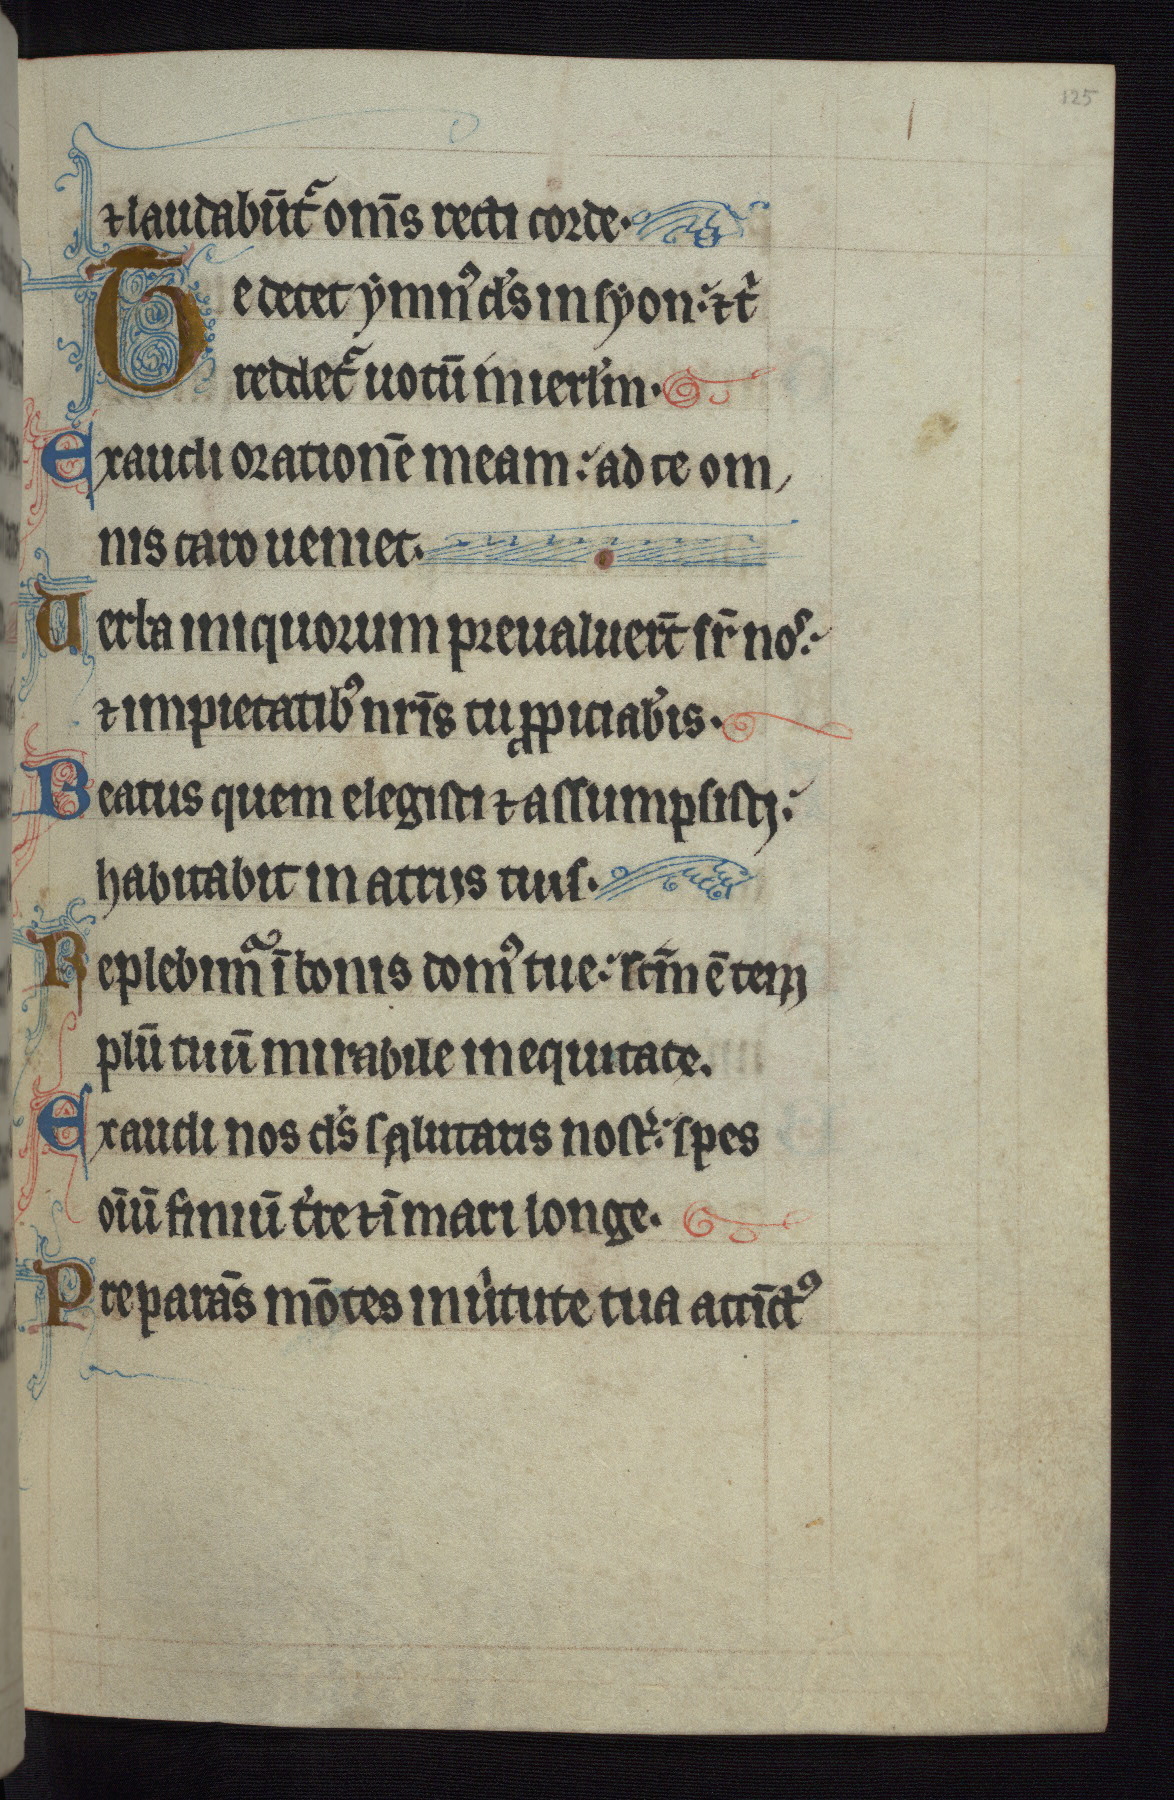 125
⁊ laudabūt᷑ om̄s recti corde.
Te decet ymnꝰ d̓s in syon: ⁊ t̓
reddet᷑ uotū in ierl̓m.
Exaudi orationē meam: ad te om
nis caro ueniet.
Uerba iniquorum preualuer̄t sr̄ nos:
⁊ impietatibꝰ nr̄is tu ꝓpiciab̓is.
Beatus quem elegisti ⁊ assumpsisti:
habitabit in atriis tuis.
Replebimᷓ ī bonis domꝰ tue: sc̄m ē tem
plū tuū mirabile in equitate.
Exaudi nos d̓s salutaris nost̓: spes
oīū finiū t̓re ⁊ ī mari longe.
Preparās mōtes in u̓tute tua accīctꝰ